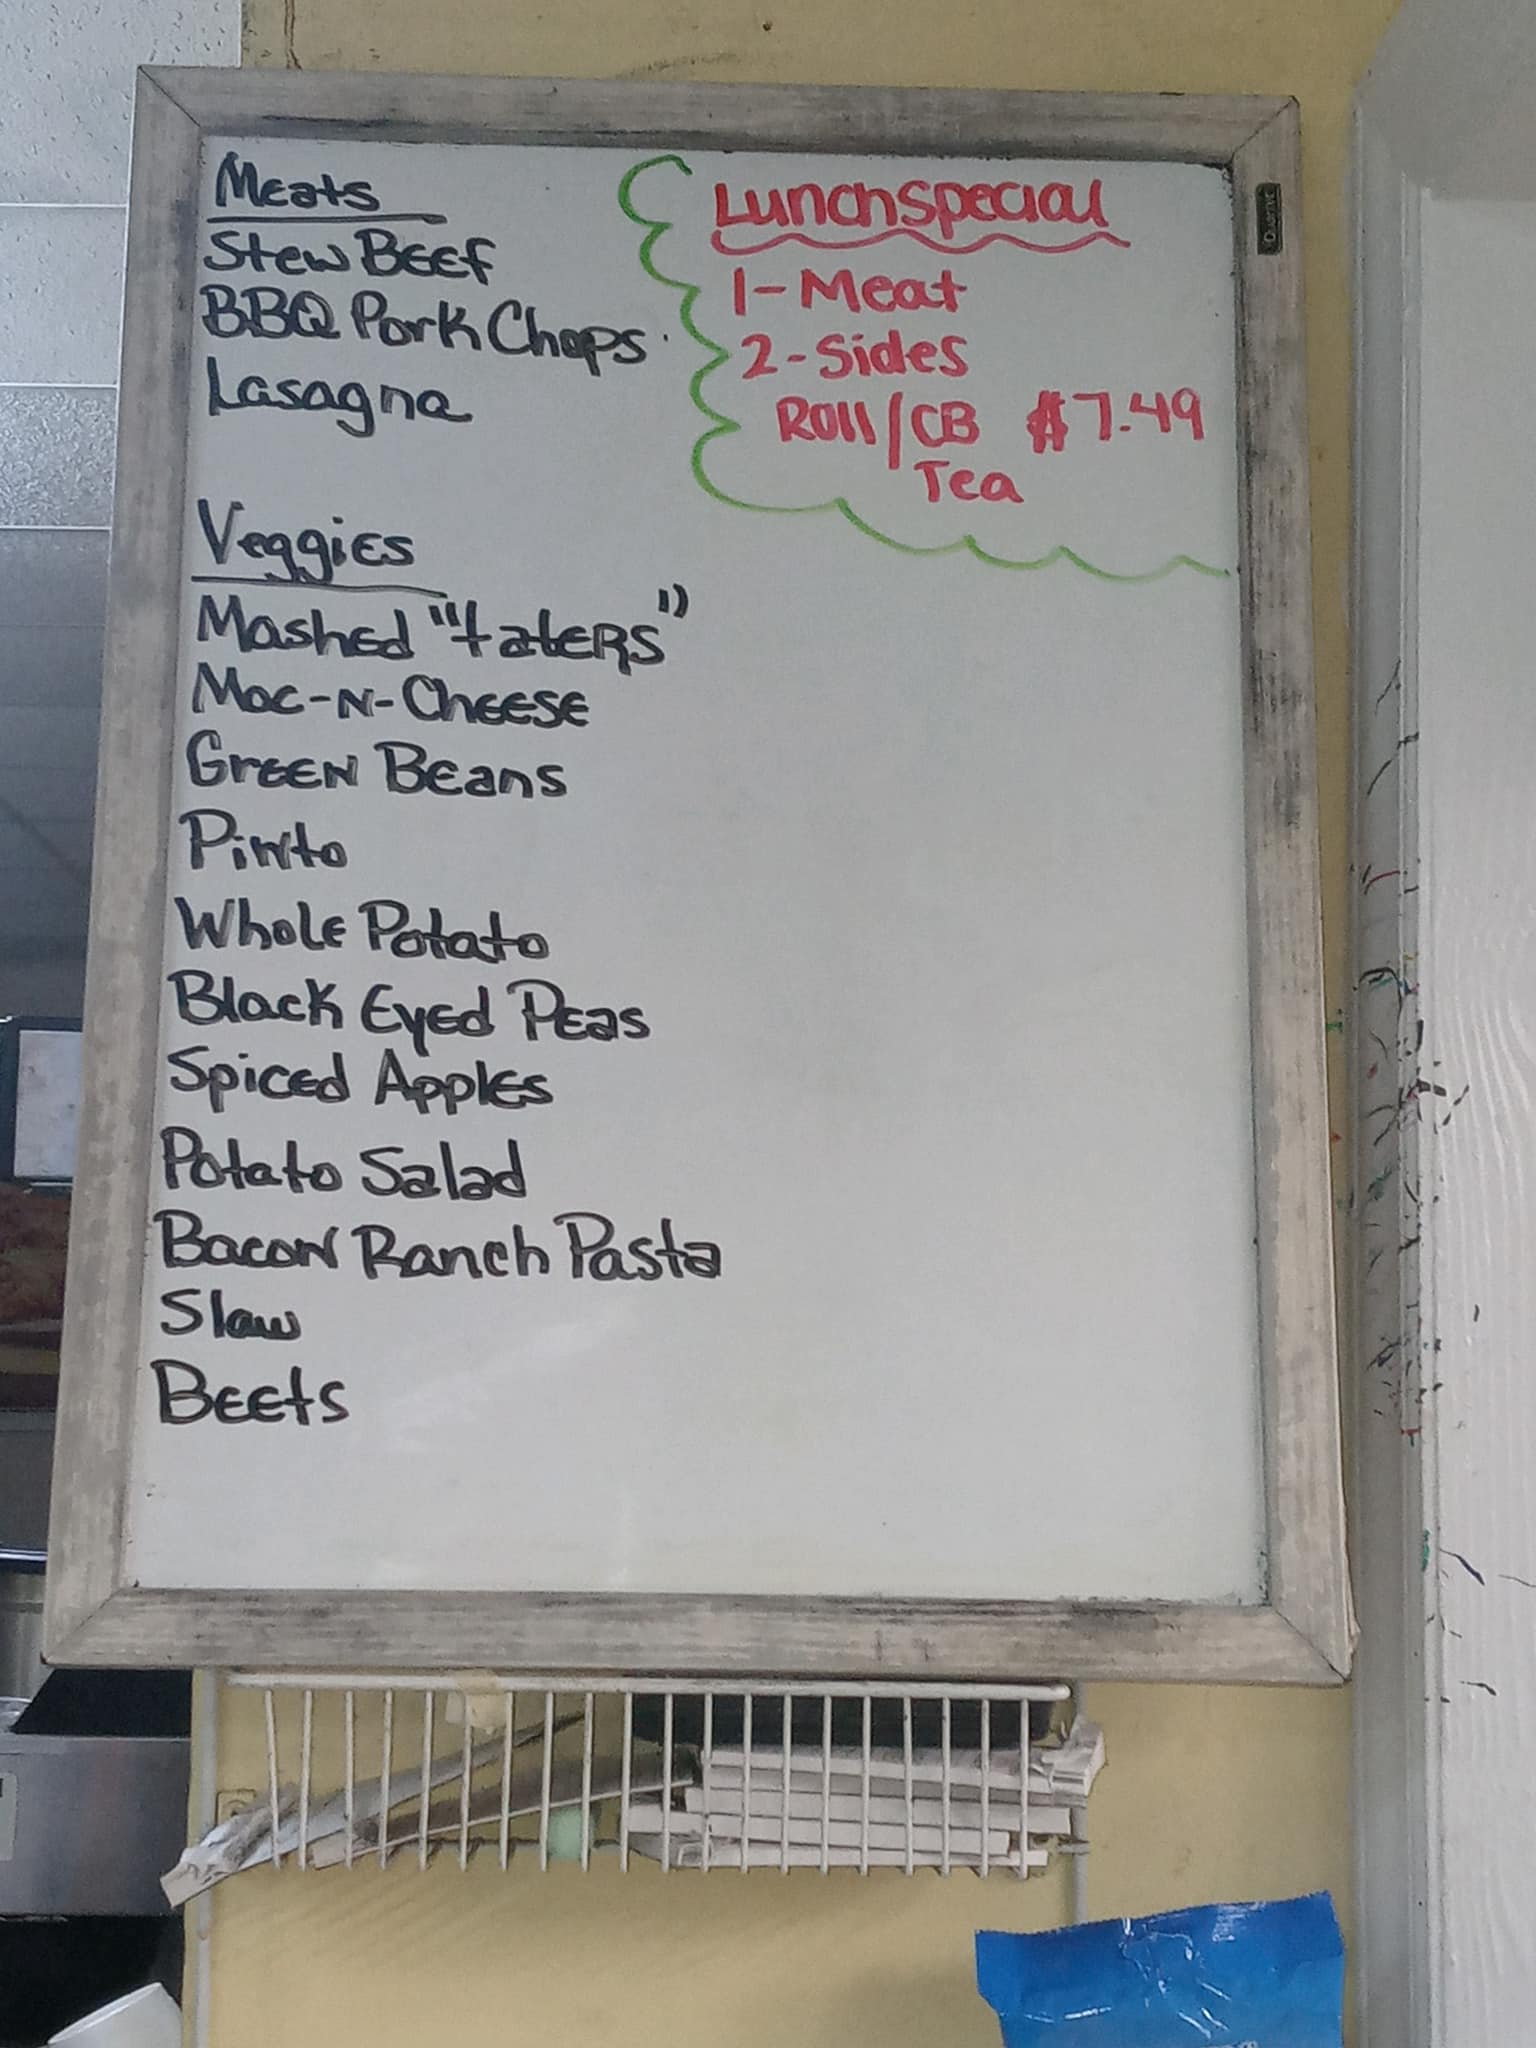 Meats
Stew Beef
BBQ Pork Chops
Lasagna
Lunch Special
1-Meat
2-Sides
Roll/CB $7.49
Tea
Veggies
Mashed "taters"
Mac-N-Cheese
Green Beans
Pinto
Whole Potato
Black Eyed Peas
Spiced Apples
Potato Salad
Bacon Ranch Pasta
Slaw
Beets
Quartet